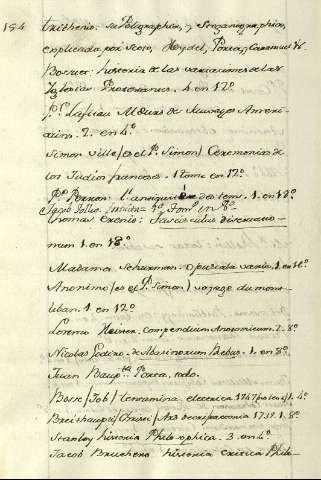 184
trithenio. de Poligraphia, y Steganographia,
explicada por Scoto, Heydel, Porta, y Caramuel &c.
Bossuet: historia de las variaciones de las
Iglesias Protestantes. 4. en 12º
Pe. Lafitau Moeurs de Sauvages Ameri-
cains. 2. en 4º.
Simon ville (es el P. Simon) Ceremonias de
los Judios franceses. 1 tomo en 12º.
Pe. Perron: l'antiquité des tems. 1. en 18º
Jacob Tollio. Fortuita 1. en 8º
thomas Crenio: fasciculus disertatio-
num 1. en 18º.
Madama Schurman. opuscula varia. 1. en 8º
Anonimo (es el P. Simon) voyage du mont
liban. 1. en 12º
Lorenzo Heister. Compendium Anatomicum. 2. 8º
Nicolas Godino. de Abasinorum Rebus. 1. en 8º.
Juan Baupta. Porta, todo.
Bose (Job) tentamina electrica. 1747 1. 4º
Breithaupt (Chrisi) Ars decifratoria 1737. 1. 8º
Stanley historia Philosophica. 3. en 4º.
Jacob Bruchero historia critica Philo-